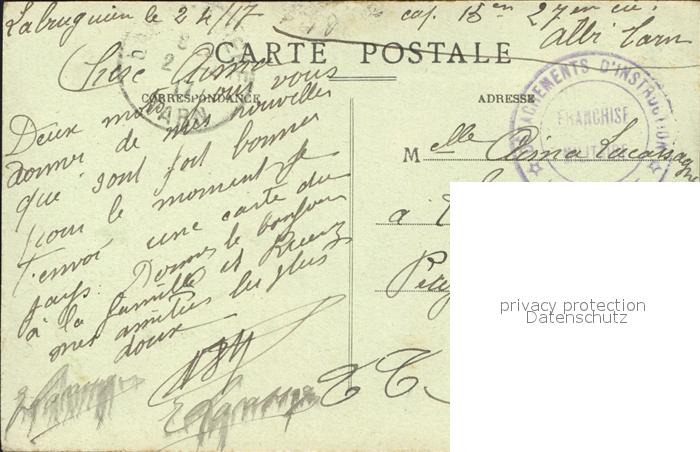 Labruguière le 24/17
cap. 15en 27em cie.
Albi Tarn
CARTE POSTALE
CORRESPONDANCE
ADRESSE
TARN
DÉTACHEMENTS D'INSTRUCTION
FRANCHISE
MILITAIRE
Chere Aima
Deux mots pour vous
donner de mes nouvelles
que sont fort bonnes
pour le moment Je
t'envoi une carte du
pays. Donnes le bonjour
à la famille et
mes amities les plus
doux
Melle Aima Lacassagne
à
privacy protection
Datenschutz